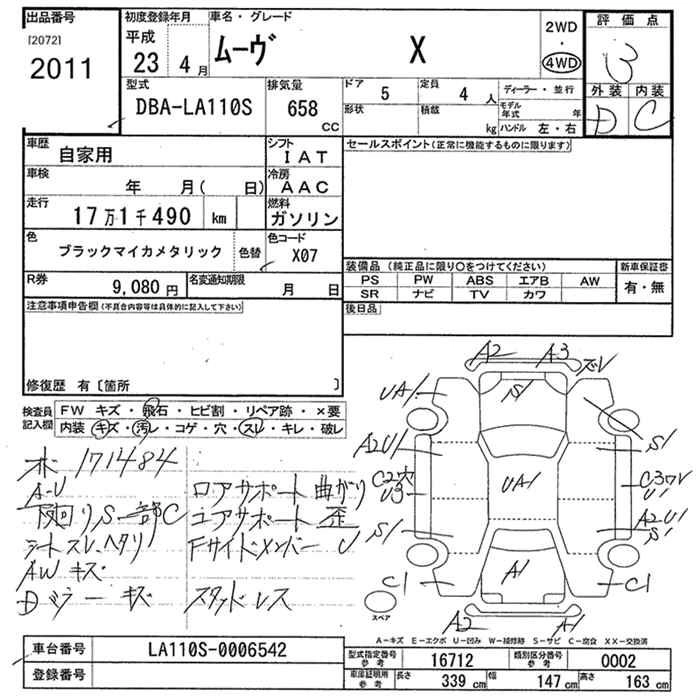 出品番号
[2072]
2011
初度登録年月
平成
23 4 月
車名・グレード
ムーヴ X
2WD
・
4WD
評価点
3
外装 内装
D C
型式
DBA-LA110S
排気量
658
CC
ドア 5
定員 4 人
形状
積載 kg
ディーラー・並行
モデル年式 年
ハンドル 左・右
車歴
自家用
シフト
IAT
車検
年 月( 日)
冷房
AAC
走行
17万1千490 km
燃料
ガソリン
色
ブラックマイカメタリック
色替
色コード
X07
R券
9,080円
名変通知期限
月 日
セールスポイント(正常に機能するものに限ります)
装備品(純正品に限り○をつけてください)
PS PW ABS エアB AW
SR ナビ TV カワ
新車保証書
有・無
後日品
注意事項申告欄(不具合内容等は具体的に記入して下さい)
修復歴 有〔箇所 〕
検査員
記入欄
FW キズ・飛石・ヒビ割・リペア跡・×要
内装 キズ・汚レ・コゲ・穴・スレ・キレ・破レ
171484
A-U
下回りS一部C
シートスレ、ヘタリ
AWキズ
Dミラーキズ
ロアサポート曲がり
コアサポート歪
FサイドメンバーU
スタッドレス
A2 A3
UA1 S1
A2U1 S1
C2穴 U3
UA1
U1
S1 A2U1 S1
A1
C1 C1
A2 A1
スペア
A-キズ E-エクボ U-凹み W-補修跡 S-サビ C-腐食 XX-交換済
車台番号
LA110S-0006542
登録番号
型式指定番号
参考
16712
類別区分番号
参考
0002
車庫証明用
参考
長さ 339 cm
幅 147 cm
高さ 163 cm